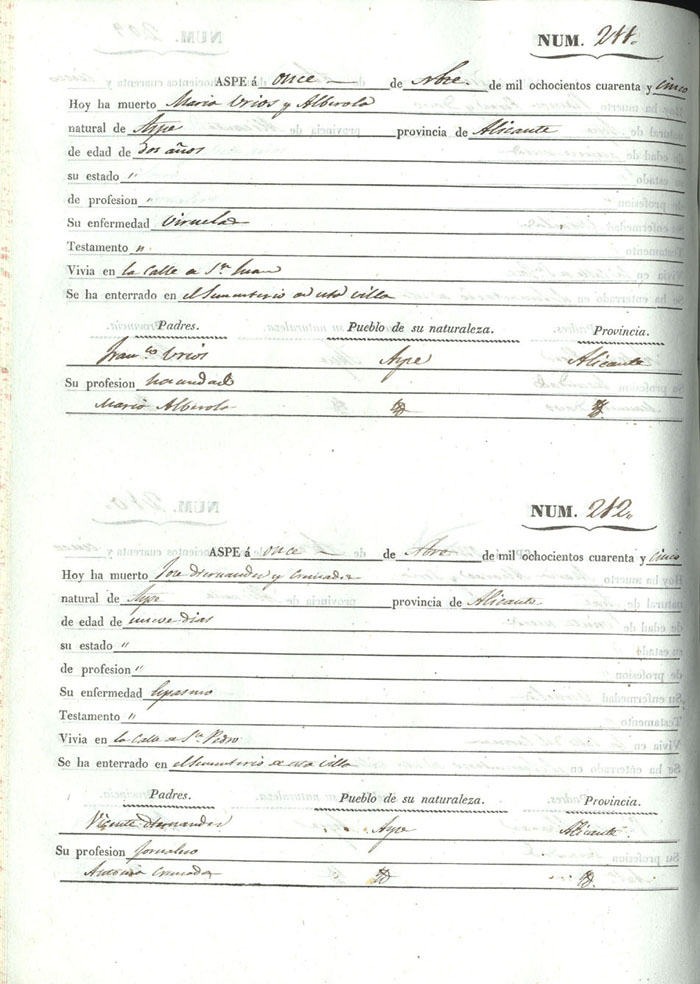 NUM. 211.
ASPE á once de Nbre. de mil ochocientos cuarenta y cinco
Hoy ha muerto Maria Urios y Alberola
natural de Aspe provincia de Alicante
de edad de dos años
su estado "
de profesion "
Su enfermedad Viruelas
Testamento "
Vivia en la Calle de Sn. Juan
Se ha enterrado en el Sementerio de esta villa
Padres. Pueblo de su naturaleza. Provincia.
Franco. Urios Aspe Alicante
Su profesion hacendado
Maria Alberola
NUM. 212.
ASPE á once de Nbre. de mil ochocientos cuarenta y cinco
Hoy ha muerto Jose Hernandez y
natural de Aspe provincia de Alicante
de edad de nueve dias
su estado "
de profesion "
Su enfermedad Espasmo
Testamento "
Vivia en la Calle de Sn. Pedro
Se ha enterrado en el Sementerio de esta villa
Padres. Pueblo de su naturaleza. Provincia.
Vicente Hernandez Aspe Alicante.
Su profesion Jornalero
Antonia